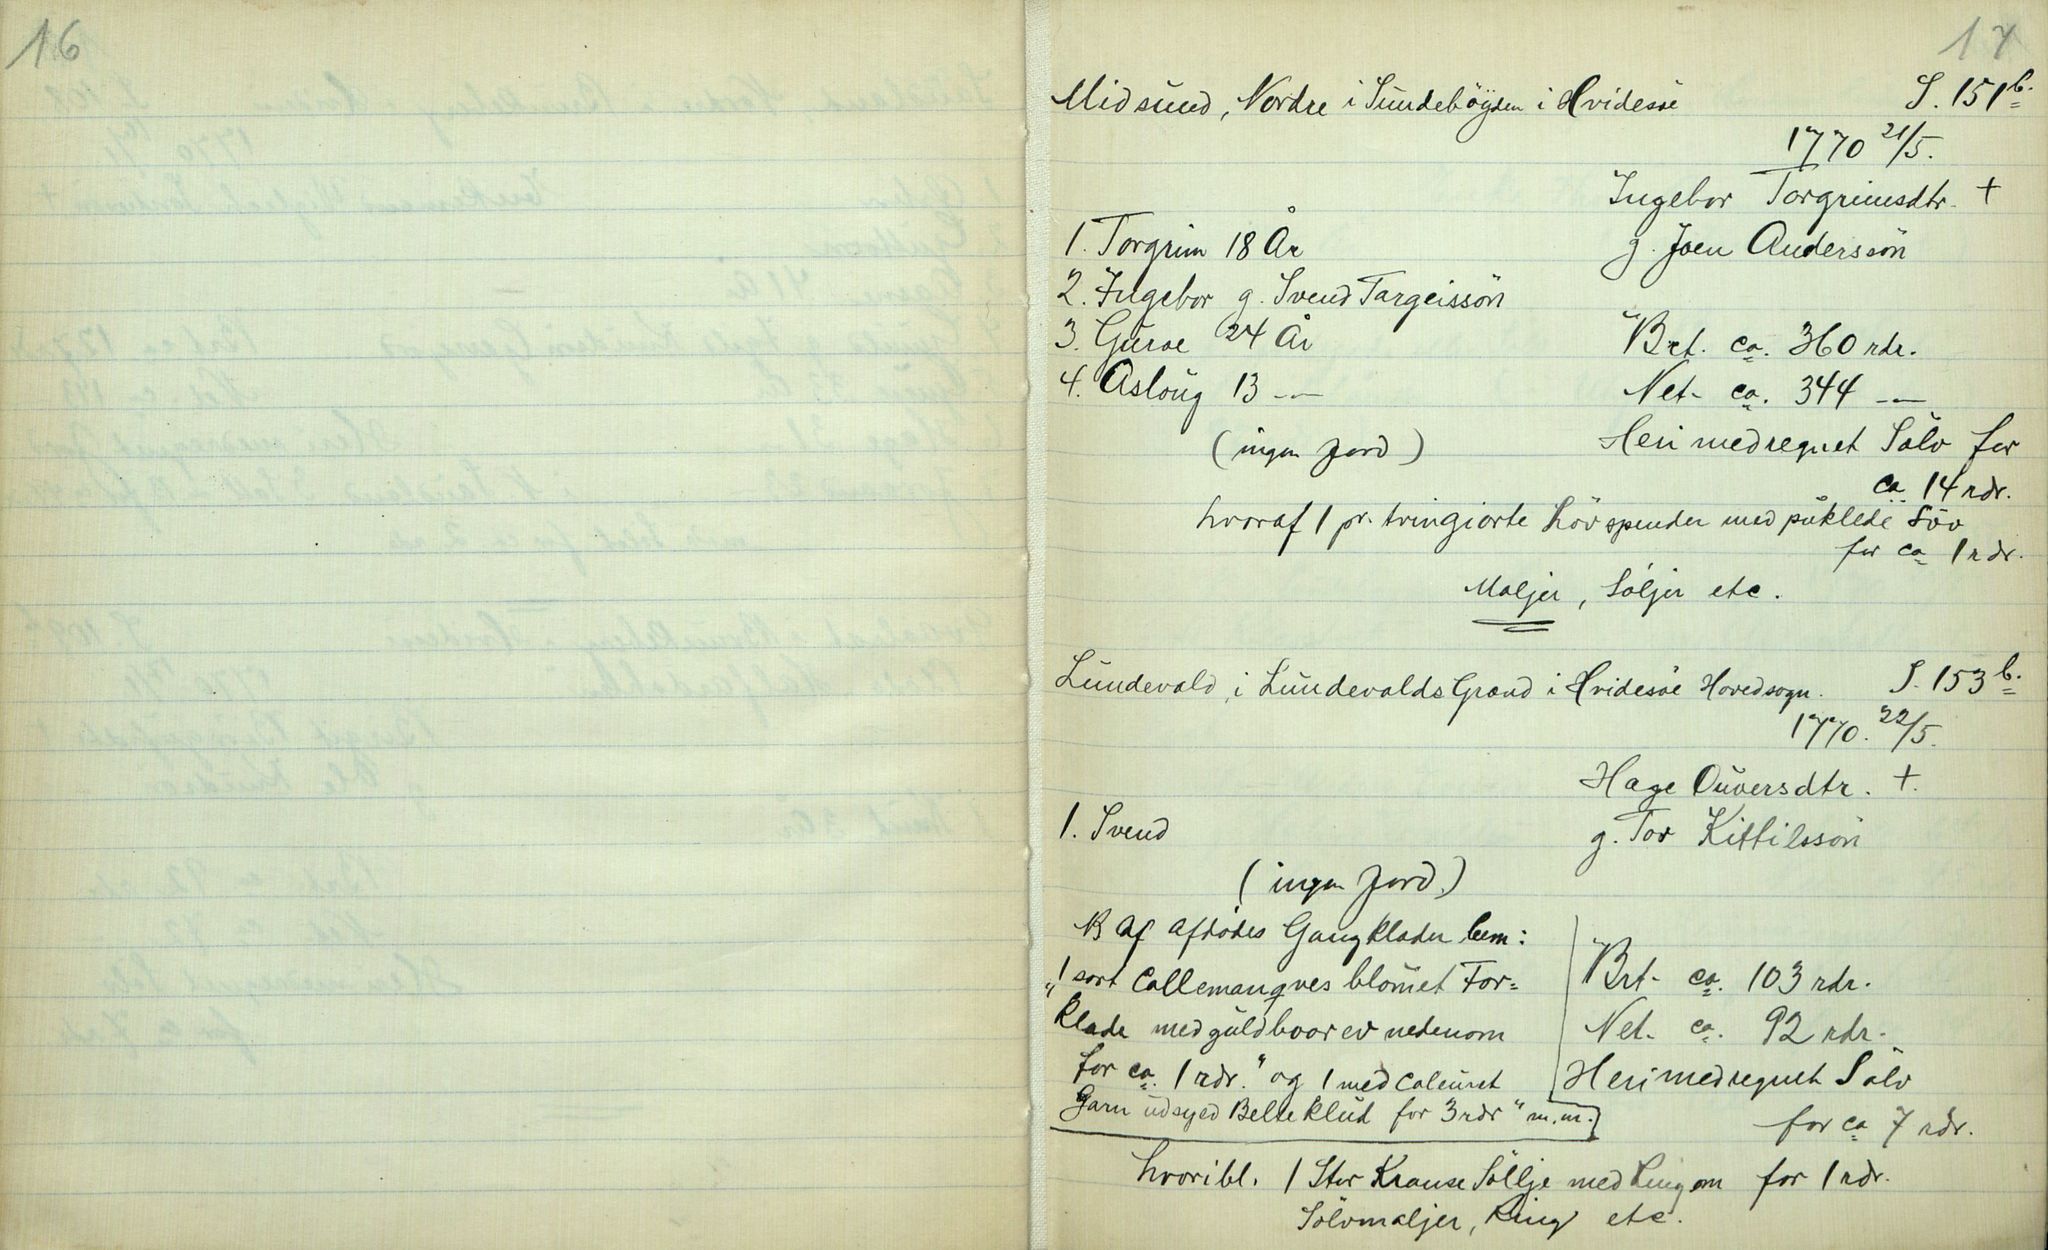 16
17
Midsund, Nordre i Sundeböyden i Hvidesöe S. 151 b.
1770 21/5.
Ingebor Torgrimsdtr. +
1. Torgrim 18 År g. Joen Anderssön
2. Ingebor g. Svend Targeissön
3. Guroe 24 År Brt. ca. 360 rdr.
4. Asloug 13 -"- Net. ca. 344 -"-
(ingen Jord) Heri medregnet Sölv for
ca. 14 rdr.
hvoraf 1 pr. tvingiorte spender med puklede
for ca 1 rdr.
Maljer, Söljer etc.
Lundevald, i Lundevalds Grænd i Hvidesöe Hovedsogn. S. 153 b.
1770. 22/5.
Hage Ouversdtr. +.
1. Svend g. Tor Kittilssön
(ingen Jord.)
NB Af afdödes Gangklæder bem:
"1 sort Callemanqves blömet For= Brt. ca. 103 rdr.
klæde med guldboorev nedenom Net. ca. 92 rdr.
for ca. 1 rdr." og 1 med Caleuret Heri medregnet Sölv
Garn udsyed Belteklud for 3 rdr" m.m. for ca 7 rdr.
hvoribl. 1 Stor Krause Söllje med Ring om for 1 rdr.
Sölvmaljer, Ring etc.